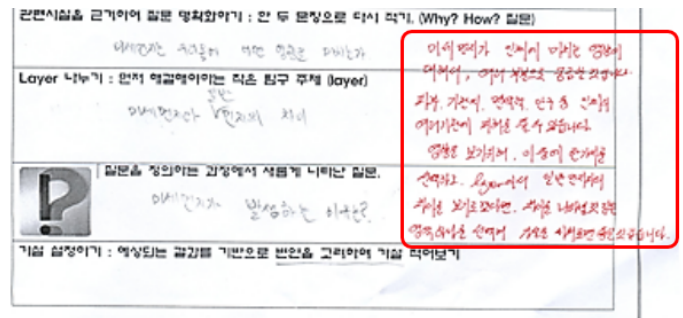 관련사실을 근거하여 질문 명확화하기 : 한 두 문장으로 다시 적기. (Why? How? 질문)
미세먼지는 우리몸에 어떤 영향을 미치는가
Layer 나누기 : 먼저 해결해야하는 작은 탐구 주제 (layer)
일반
미세먼지와 먼지의 차이
질문을 정의하는 과정에서 새롭게 나타난 질문.
미세먼지가 발생하는 이유는?
가설 설정하기 : 예상되는 결과를 기반으로 변인을 고려하여 가설 적어보기
미세먼지가 인체에 미치는 영향에
대해서, 여러 부분으로 있습니다.
피부, 기관지, 면역력, 안구 등 인체의
여러기관에 영향을 줄 수 있습니다
영향을 보기위해, 이 중에 한가지를
선택하고, layer에서 일반먼지와의
차이를 보기로 했다면, 차이를 나타낼 수 있는
선택해 있습니다.